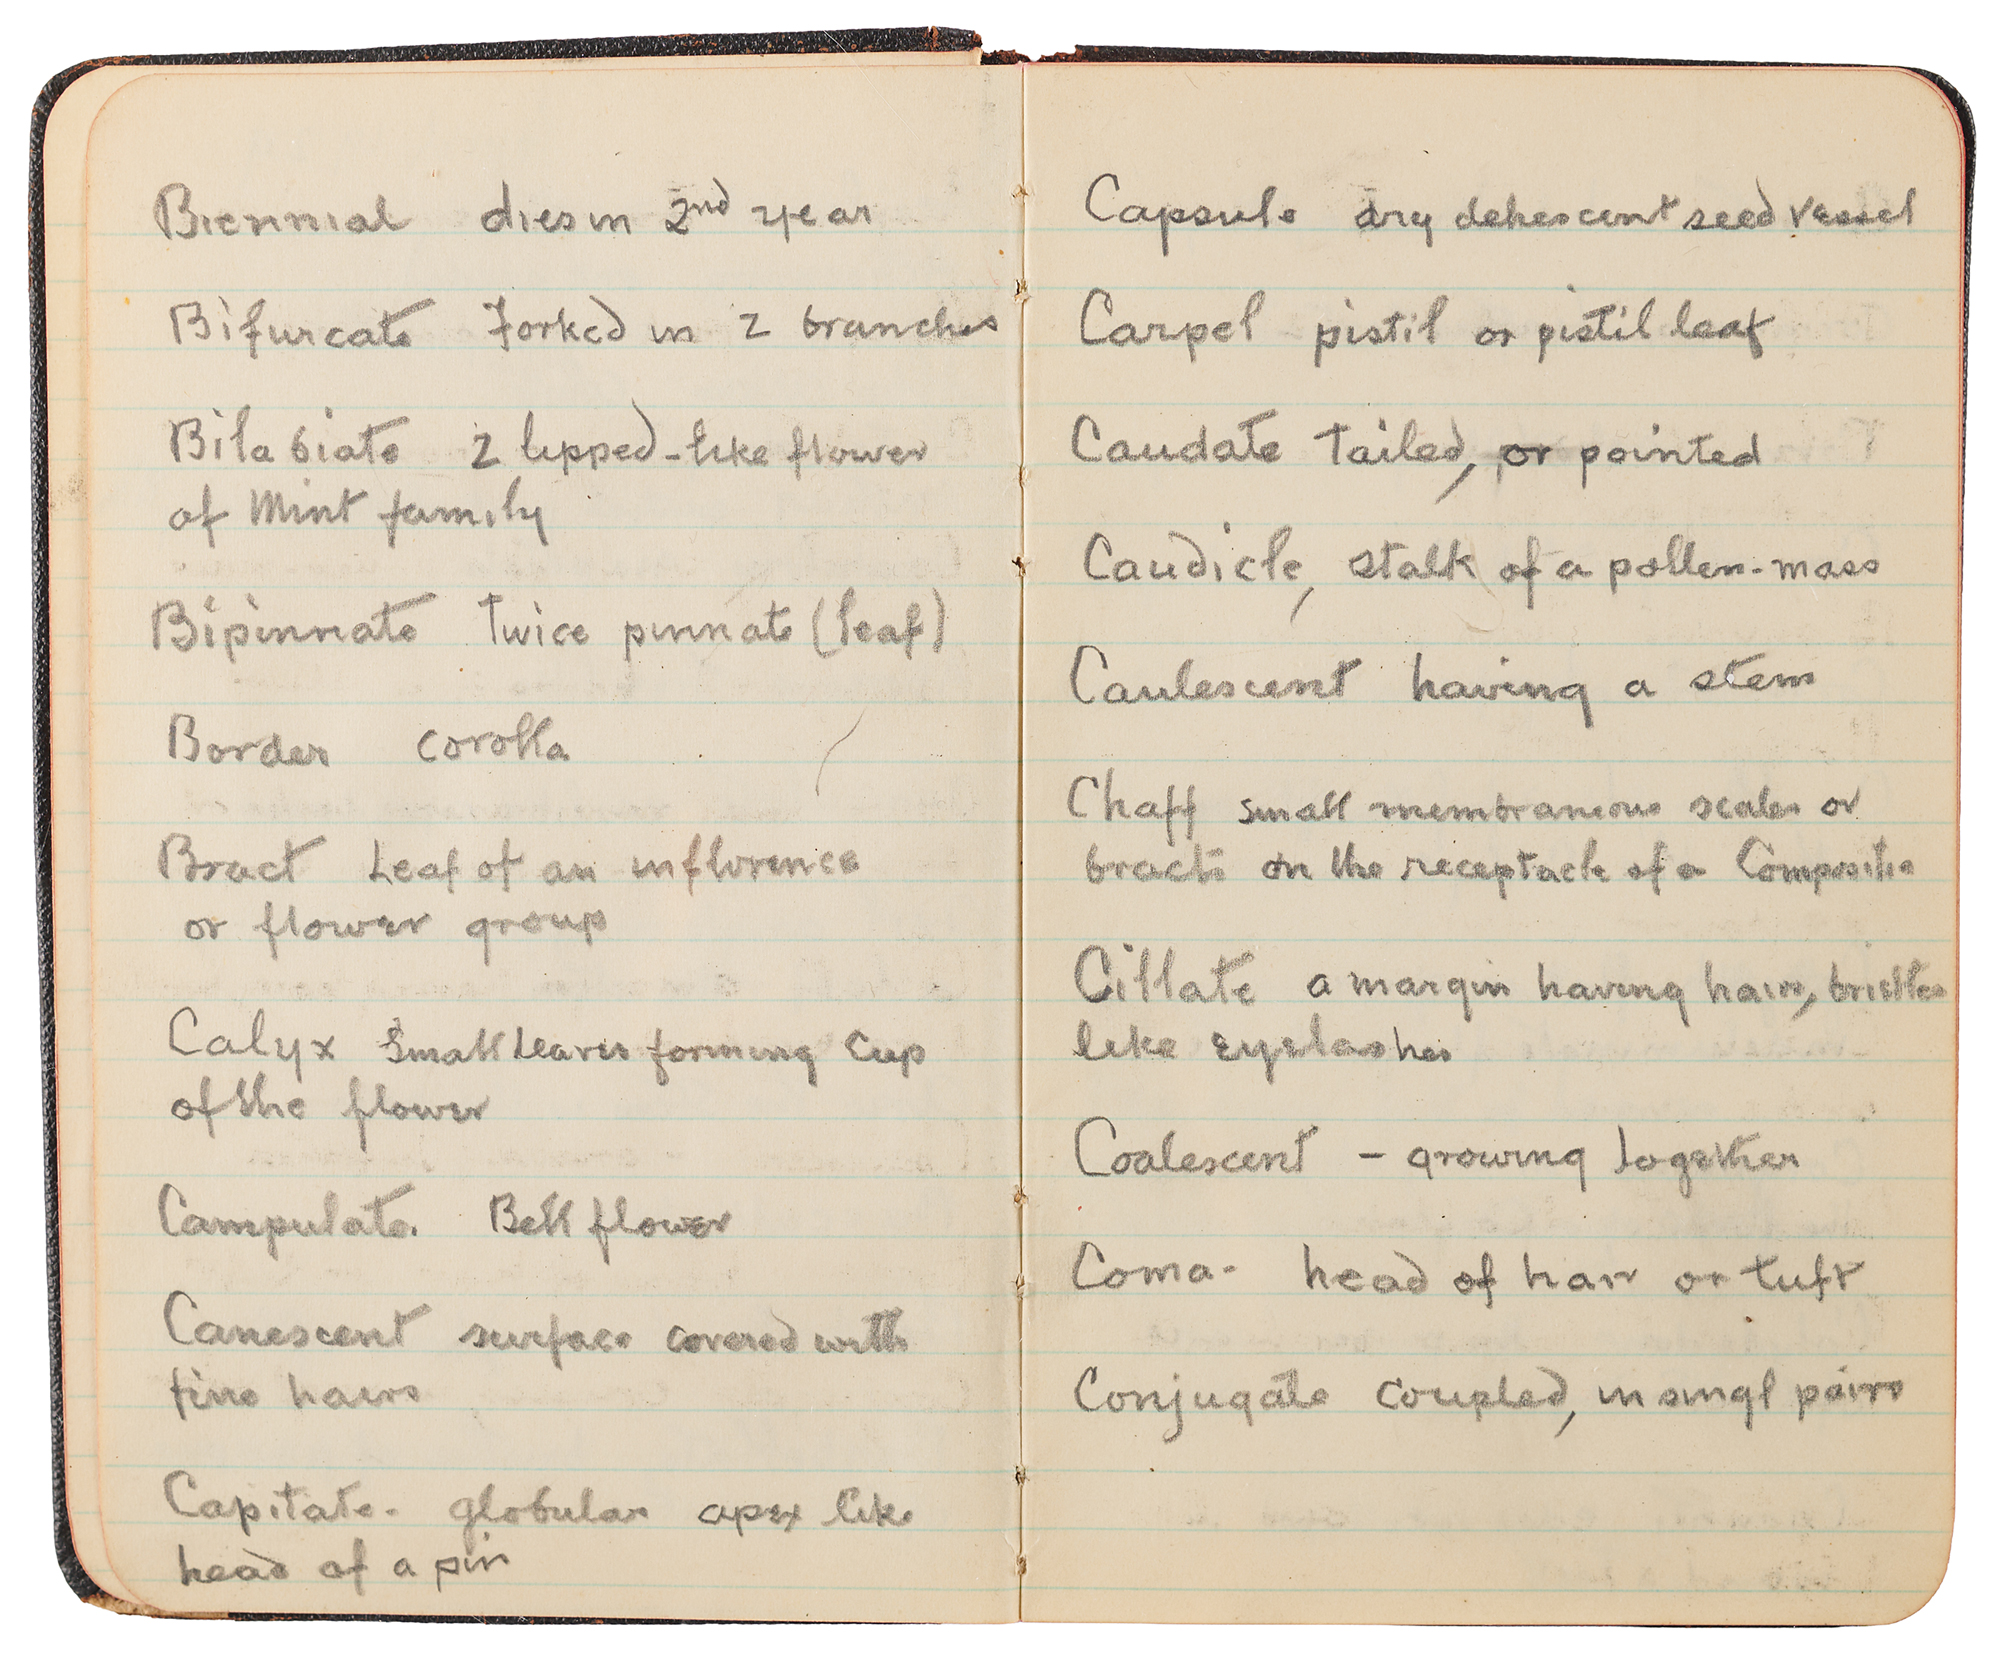 Biennial dies in 2nd year
Bifurcate Forked in 2 branches
Bilabiate 2 lipped-like flower
of Mint family
Bipinnate Twice pinnate (leaf)
Border corolla
Bract Leaf of an inflorence
or flower group
Calyx Small Leaves forming Cup
of the flower
Campulate. Bell flower
Canescent surface covered with
fine hairs
Capitate- globular apex like
head of a pin
Capsule dry dehescent seed vessel
Carpel pistil or pistil leaf
Caudate Tailed, or pointed
Caudicle, stalk of a pollen-mass
Caulescent having a stem
Chaff small membraneous scales or
bracts on the receptacle of a Composite
Cillate a margin having hairs, bristles
like eyelashes
Coalescent - growing together
Coma- head of hair or tuft
Conjugate coupled, in singl pairs